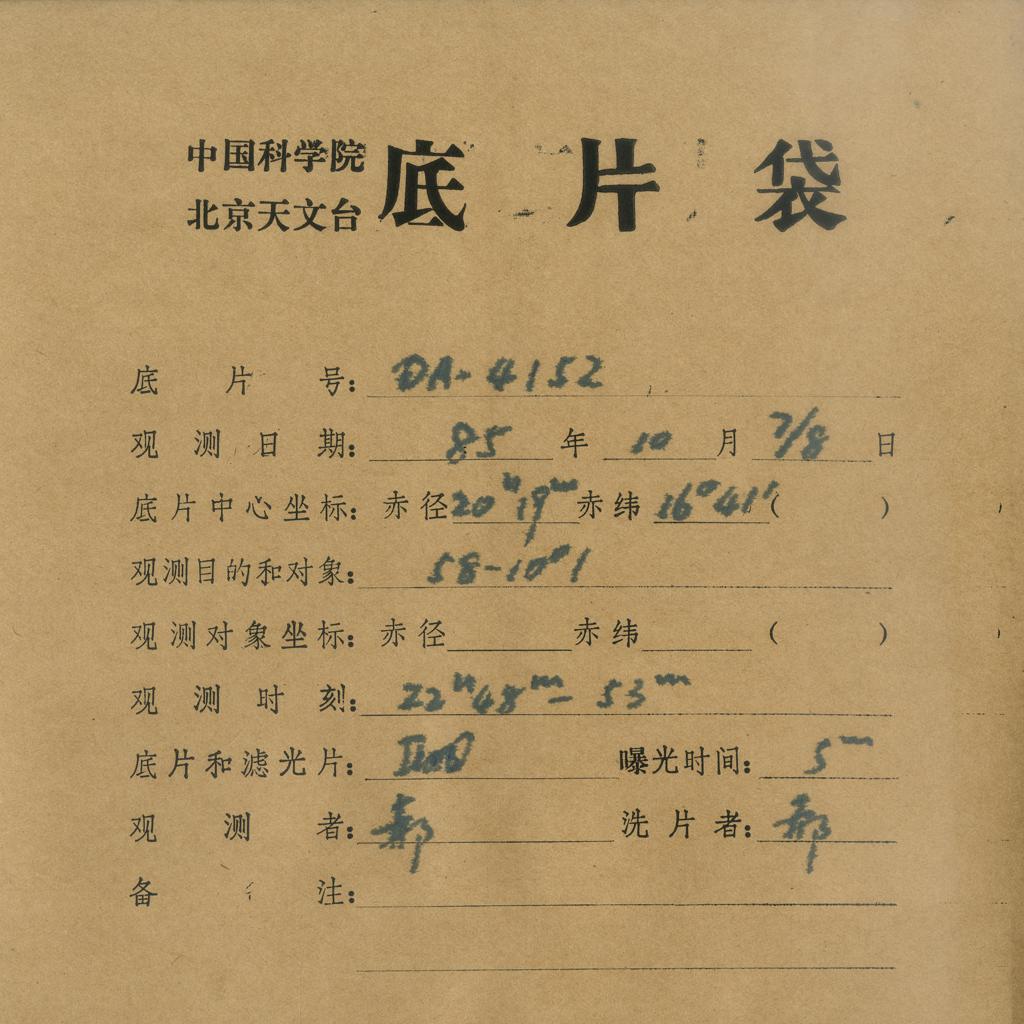 中国科学院
北京天文台
底片袋
底片号：DA-4152
观测日期：85年10月7/8日
底片中心坐标：赤径20ʰ19ᵐ赤纬16°41′（ ）
观测目的和对象：58-10#1
观测对象坐标：赤径 赤纬 （ ）
观测时刻：22ʰ48ᵐ-53ᵐ
底片和滤光片： 曝光时间：5ᵐ
观测者：郝 洗片者：郝
备注：